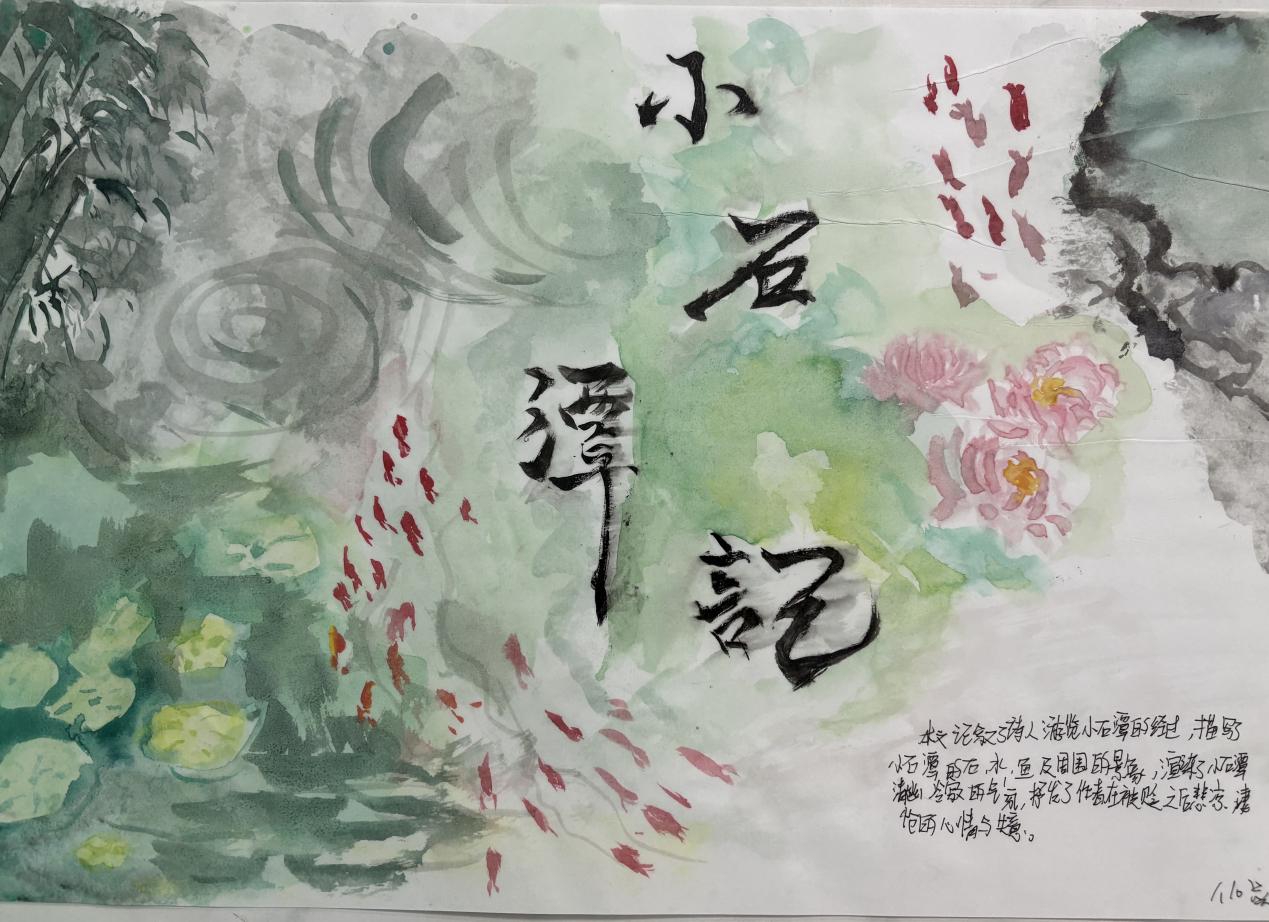 小
石
潭
記
本文记叙了诗人游览小石潭的经过，描写
小石潭的石、水、鱼及周围的景象，渲染了小石潭
清幽冷寂的气氛，抒发了作者在被贬之后悲凉、凄
怆的心情与境。